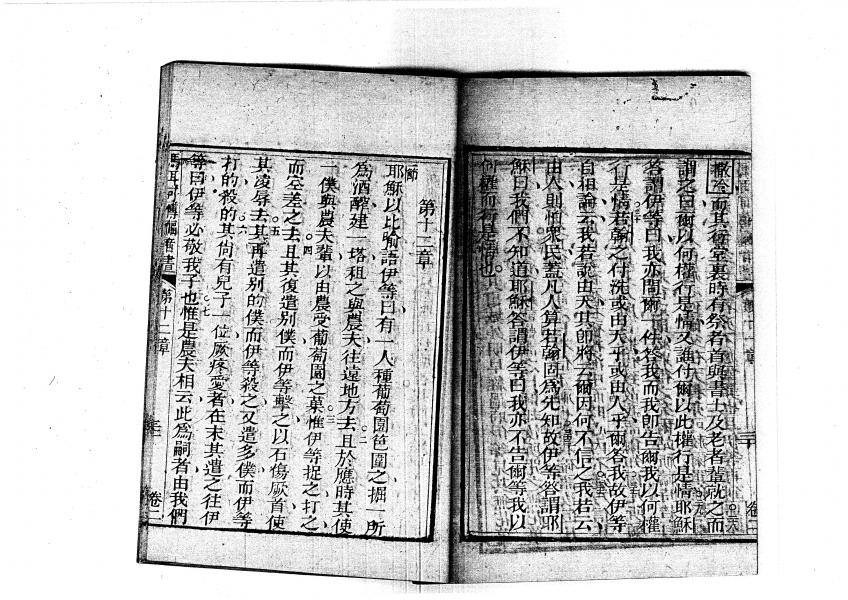 撒冷而其行堂裏時有祭者首與書士及老者輩就之而
謂之曰爾以何權行是情又誰付爾以此權行是情耶穌
答謂伊等曰我亦問爾一件答我而我卽告爾我以何權
行是情若翰之付洗或由天乎或由人乎爾答我故伊等
自相論云我若說由天其卽將云爾因何不信之我若云
由人則怕衆民蓋凡人算若翰固爲先知故伊等答謂耶
穌曰我們不知道耶穌答謂伊等曰我亦不告爾等我以
何權而行是情也
第十一章
卷二
第十二章
節
耶穌以比喻語伊等曰有一人種葡萄園笆圍之掘一所
爲酒醡建一塔租之與農夫往遠地方去且於應時其使
一僕與農夫輩以由農受葡萄園之菓惟伊等捉之打之
而空差之去且其復遣別僕而伊等擊之以石傷厥首使
其凌辱去其再遣別的僕而伊等殺之又遣多僕而伊等
打的殺的其尙有兒子一位厥疼愛者在末其遣之往伊
等曰伊等必敬我子也惟是農夫相云此爲嗣者由我們
第十二章
卷二